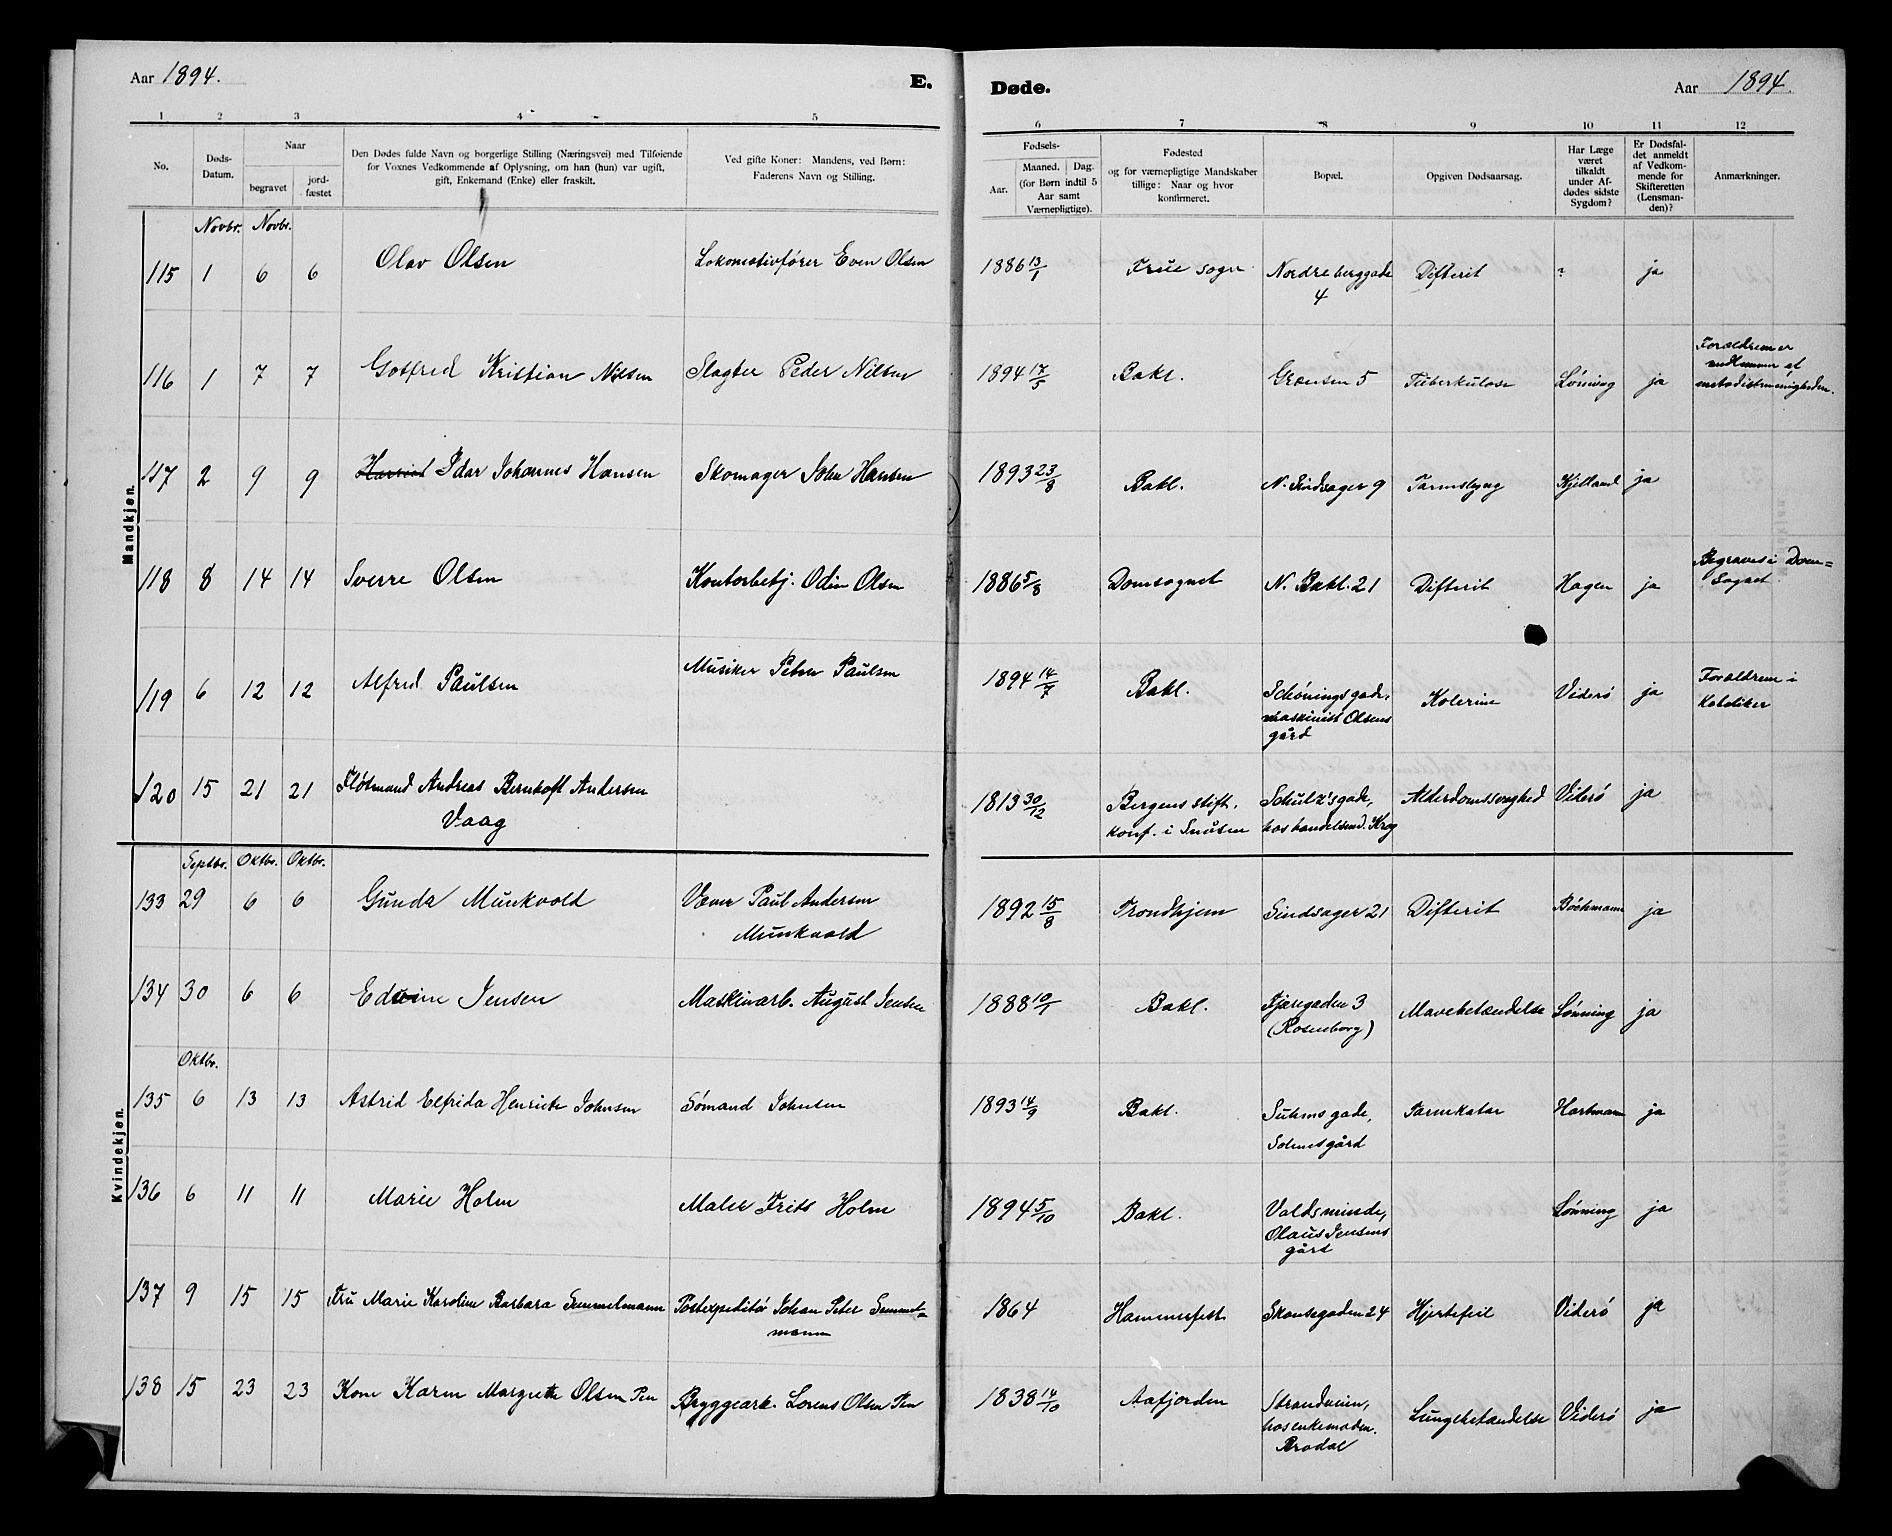 Aar 1894.
E.
Døde.
Aar 1894.
1 2 3 4 5 6 7 8 9 10 11 12
No.
Døds-Datum.
Naar
begravet
jord-fæstet
Den Dødes fulde Navn og borgerlige Stilling (Næringsvei) med Tilføiende
for Voxnes Vedkommende af Oplysning, om han (hun) var ugift,
gift, Enkemand (Enke) eller fraskilt.
Ved gifte Koner: Mandens, ved Børn:
Faderens Navn og Stilling.
Fødsels-
Aar.
Maaned. Dag.
(for Børn indtil 5
Aar samt
Værnepligtige).
Fødested
og for værnepligtige Mandskaber
tillige: Naar og hvor
konfirmeret.
Bopæl.
Opgiven Dødsaarsag.
Har Læge
været
tilkaldt
under Af-
dødes sidste
Sygdom?
Er Dødsfal-
det anmeldt
af Vedkom-
mende for
Skifteretten
(Lensman-
den)?
Anmærkninger.
Mandkjøn.
Novbr. Novbr.
115 1 6 6 Olav Olsen Lokomotivfører Even Olsen 1886 13/1 Frue sogn Nordre berggade Difterit ? ja
4
116 1 7 7 Gotfred Kristian Nilsen Slagter Peder Nilsen 1894 17/5 Bakl. Grænsen 5 Tuberkulose Lønning ja Forældrene er
medlemmer af
metodistmenigheden.
117 2 9 9 Idar Johannes Hansen Skomager John Hansen 1893 23/8 Bakl. N. Sindsager 9 Tarmslyng Kjelland ja
118 8 14 14 Sverre Olsen Kontorbetj. Odin Olsen 1886 5/8 Domsognet N. Bakl. 21 Difterit Hagen ja Begraves i Dom=
Sognet.
119 6 12 12 Alfred Paulsen Musiker Peter Paulsen 1894 14/7 Bakl. Schøningsgade, Kolerine Viderø ja Forældrene i
maskinist Olsens Katoliker
gård
120 15 21 21 Fløtmand Andreas Bernhoft Andersen 1813 30/12 Bergens stift. Schulz'sgade, Alderdomssvaghed Viderø ja
Vaag konf. i hos handelsmd. Krog
Kvindekjøn.
Septbr. Oktbr. Oktbr.
133 29 6 6 Gunda Munkvold Væver Paul Andersen 1892 15/8 Trondhjem Sindsager 21 Difterit Bøchmann ja
Munkvold
134 30 6 6 Edvine Jensen Maskinarb. August Jensen 1888 10/1 Bakl. Tjæregaden 3 Mavebetændelse Lønning ja
(Rosenborg)
Oktbr.
135 6 13 13 Astrid Elfrida Henriette Johnsen Sømand Johnsen 1893 14/9 Bakl. Suhmsgade, Tarmkatar Hartmann ja
Solemsgård
136 6 11 11 Marie Holm Maler Frits Holm 1894 5/10 Bakl. Voldsminde, Lønning ja
Olaus Jensens
gård
137 9 15 15 Fru Marie Karoline Barbara Semmelmann Postexpeditør Johan Peter Semmel=
mann 1864 Hammerfest Skansegaden 24 Hjertefeil Viderø ja
138 15 23 23 Kone Karen Margrethe Olsen Ten Bryggearb. Lorens Olsen Ten 1838 14/10 Aafjorden Strandveien, Lungebetændelse Viderø ja
hos enkemaden.
Brodal